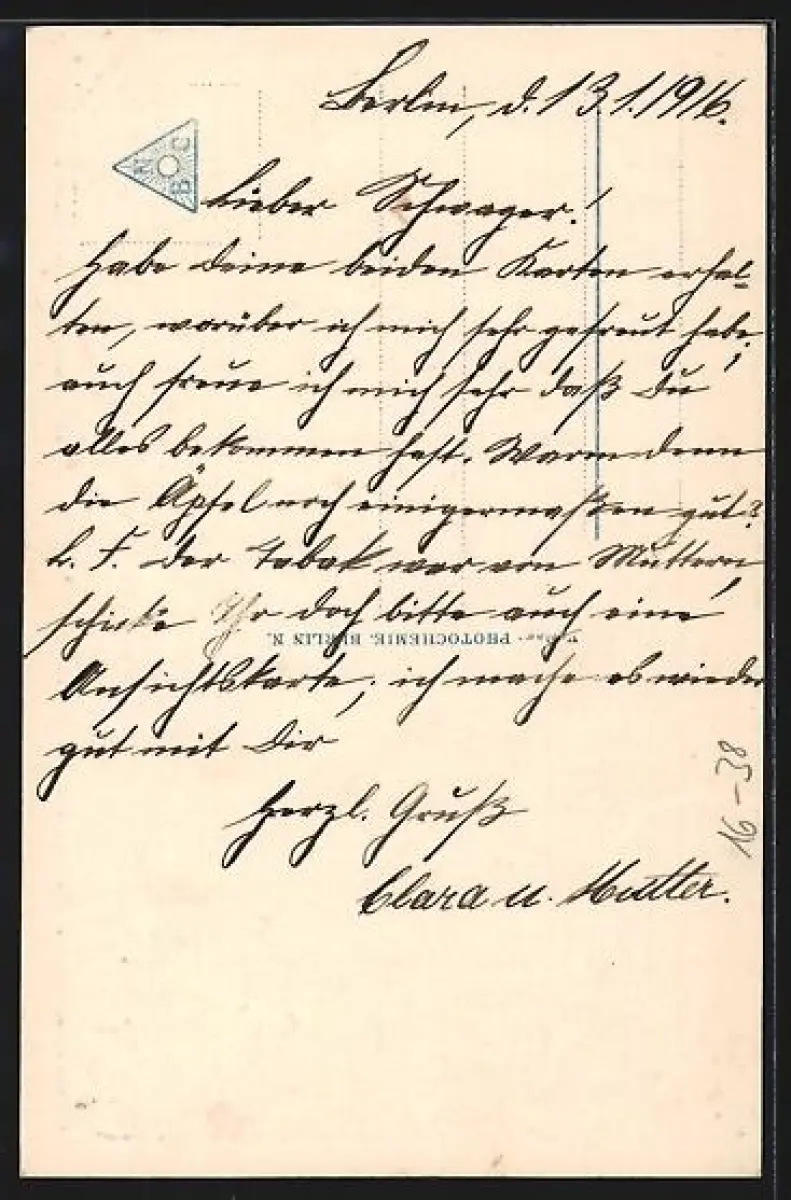 Berlin, d. 13.1.1916.
Lieber Schwager!
Habe deine beiden Karten erhal-
ten, worüber ich mich sehr gefreut habe;
auch freue ich mich sehr daß Du
alles bekommen hast. Waren denn
die Äpfel noch einigermaßen gut?
L. F. der Tabak war von Muttern,
schicke Ihr doch bitte auch eine
Ansichtskarte, ich mache es wieder
gut mit Dir
Herzl. Gruß
Clara u. Mutter.
N B C
PHOTOCHEMIE, BERLIN N.
16-38